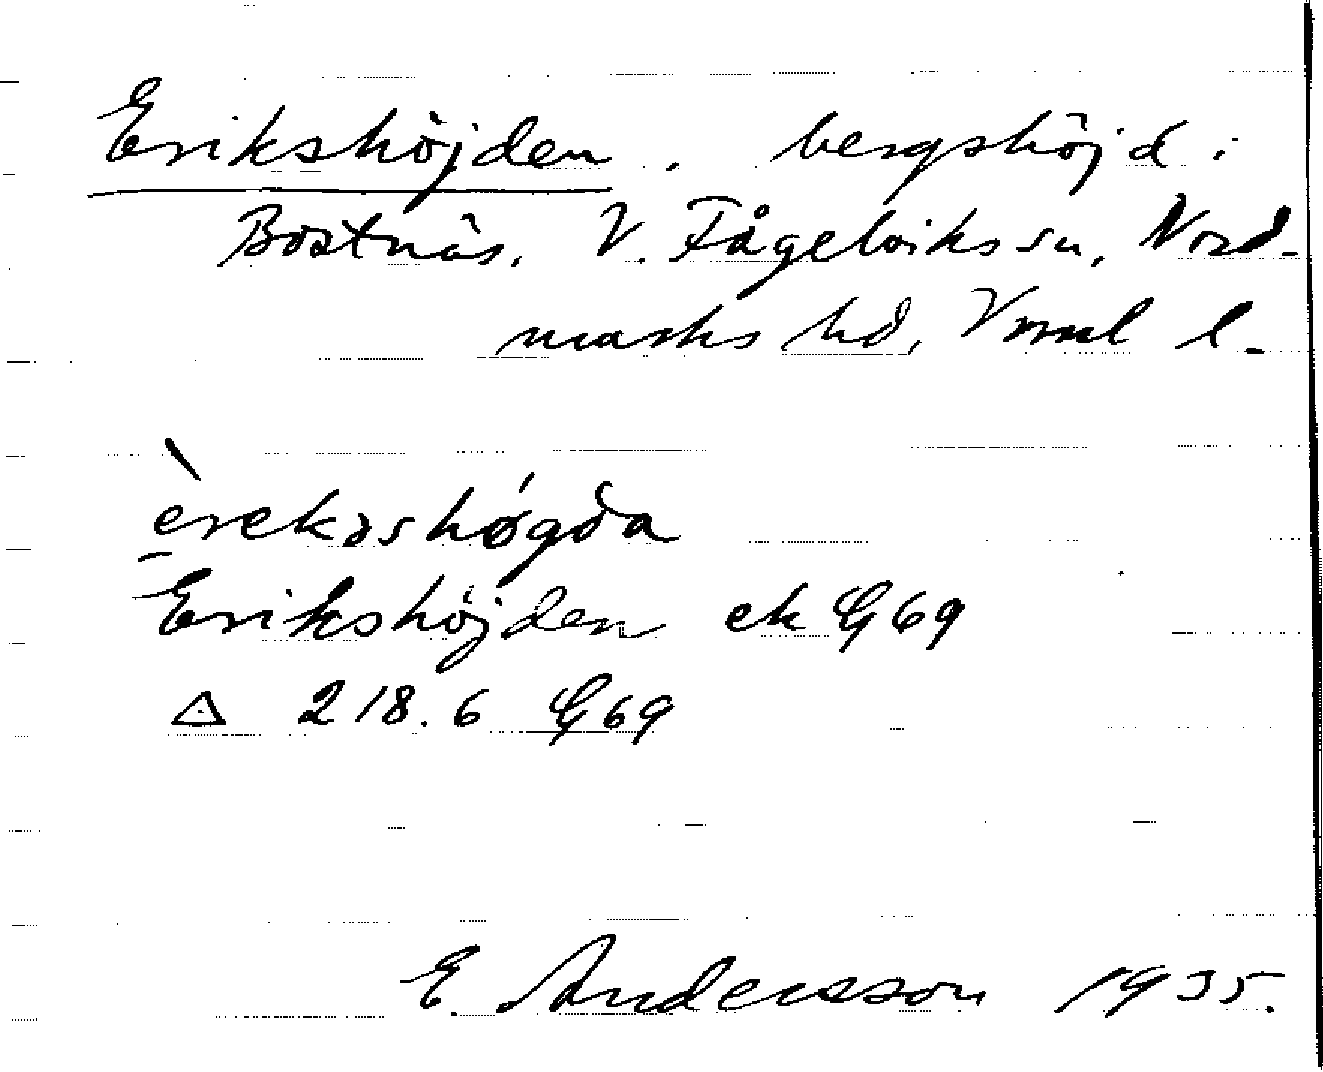 Erikshöjden. bergshöjd i
Bostnäs, V. Fågelviks sn, Nord-
marks hd, Vrml l.
èrekəshǿgda
Erikshöjden ek G69
△ 218.6 G69
E. Andersson 1935.